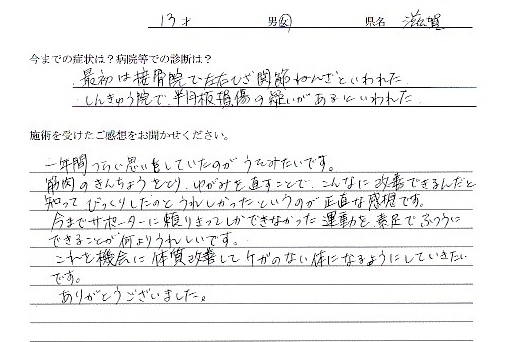 13才 男・女 県名 滋賀
今までの症状は？病院等での診断は？
最初は接骨院で左右ひざ関節ねんざといわれた
しんきゅう院で半月板損傷の疑いがあるといわれた
施術を受けたご感想をお聞かせください。
一年間つらい思いをしていたのがうそみたいです。
筋肉のきんちょうをとり、ゆがみを直すことで、こんなに改善できるんだと
知ってびっくりしたのとうれしかったというのが正直な感想です。
今までサポーターに頼りきってしかできなかった運動を素足でふつうに
できることが何よりうれしいです。
これを機会に体質改善してケガのない体になるようにしていきたい
です。
ありがとうございました。